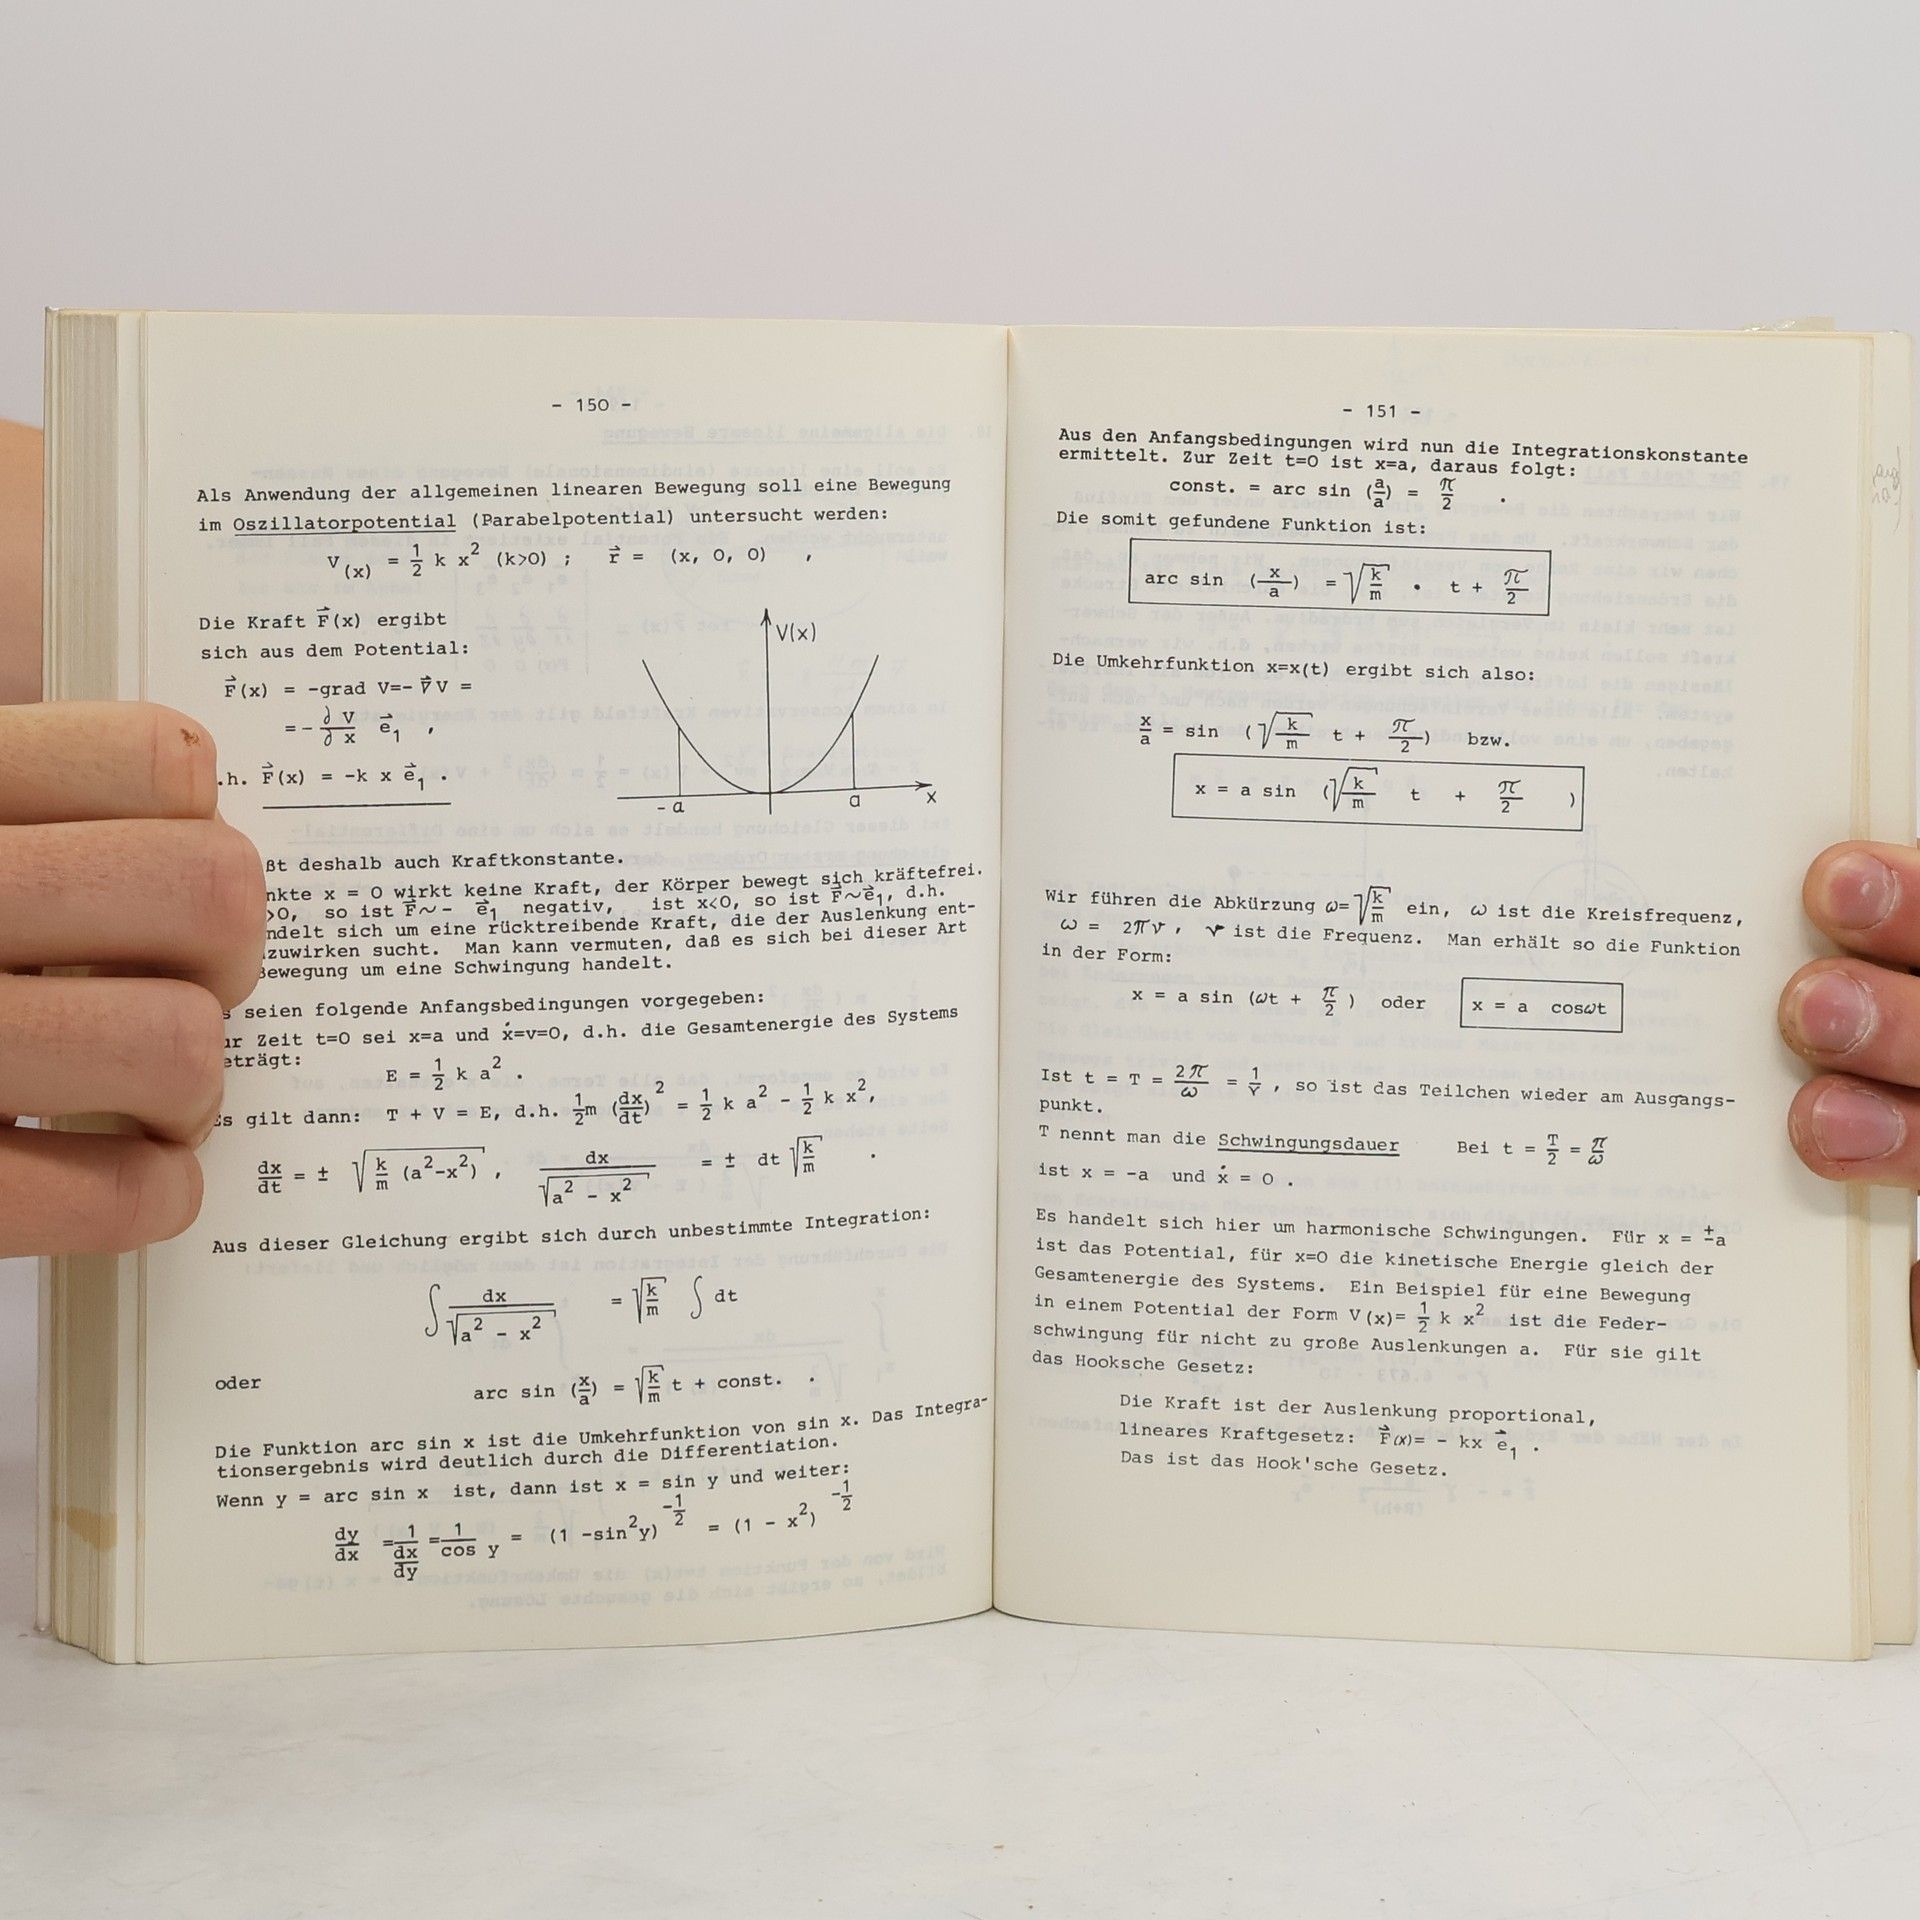 - 150 -
Als Anwendung der allgemeinen linearen Bewegung soll eine Bewegung
im Oszillatorpotential (Parabelpotential) untersucht werden:
V(x) = 1/2 k x² (k>0) ; r⃗ = (x, 0, 0) ,
Die Kraft F⃗(x) ergibt
sich aus dem Potential:
F⃗(x) = -grad V=- ∇⃗ V =
=- ∂V/∂x e⃗₁ ,
.h. F⃗(x) = -k x e⃗₁ .
V(x)
-a a x
ßt deshalb auch Kraftkonstante.
nkte x = 0 wirkt keine Kraft, der Körper bewegt sich kräftefrei.
>0, so ist F⃗∼ - e⃗₁ negativ, ist x<0, so ist F⃗∼e⃗₁, d.h.
ndelt sich um eine rücktreibende Kraft, die der Auslenkung ent-
zuwirken sucht. Man kann vermuten, daß es sich bei dieser Art
Bewegung um eine Schwingung handelt.
s seien folgende Anfangsbedingungen vorgegeben:
ur Zeit t=0 sei x=a und ẋ=v=0, d.h. die Gesamtenergie des Systems
eträgt:
E = 1/2 k a² .
Es gilt dann: T + V = E, d.h. 1/2m (dx/dt)² = 1/2 k a² - 1/2 k x²,
dx/dt = ± √(k/m (a²-x²)) , dx/√(a² - x²) = ± dt √(k/m) .
Aus dieser Gleichung ergibt sich durch unbestimmte Integration:
∫ dx/√(a² - x²) = √(k/m) ∫ dt
oder
arc sin (x/a) = √(k/m) t + const. .
Die Funktion arc sin x ist die Umkehrfunktion von sin x. Das Integra-
tionsergebnis wird deutlich durch die Differentiation.
Wenn y = arc sin x ist, dann ist x = sin y und weiter:
dy/dx = 1/(dx/dy) = 1/cos y = (1 -sin²y)^(-1/2) = (1 - x²)^(-1/2)
- 151 -
Aus den Anfangsbedingungen wird nun die Integrationskonstante
ermittelt. Zur Zeit t=0 ist x=a, daraus folgt:
const. = arc sin (a/a) = π/2 .
Die somit gefundene Funktion ist:
arc sin (x/a) = √(k/m) • t + π/2
Die Umkehrfunktion x=x(t) ergibt sich also:
x/a = sin (√(k/m) t + π/2) bzw.
x = a sin (√(k/m) t + π/2 )
Wir führen die Abkürzung ω=√(k/m) ein, ω ist die Kreisfrequenz,
ω = 2πν, ν ist die Frequenz. Man erhält so die Funktion
in der Form:
x = a sin (ωt + π/2 ) oder x = a cosωt
Ist t = T = 2π/ω = 1/ν , so ist das Teilchen wieder am Ausgangs-
punkt.
T nennt man die Schwingungsdauer Bei t = T/2 = π/ω
ist x = -a und ẋ = 0 .
Es handelt sich hier um harmonische Schwingungen. Für x = ±a
ist das Potential, für x=0 die kinetische Energie gleich der
Gesamtenergie des Systems. Ein Beispiel für eine Bewegung
in einem Potential der Form V(x)= 1/2 k x² ist die Feder-
schwingung für nicht zu große Auslenkungen a. Für sie gilt
das Hooksche Gesetz:
Die Kraft ist der Auslenkung proportional,
lineares Kraftgesetz: F⃗(x)= - kx e⃗₁ .
Das ist das Hook'sche Gesetz.